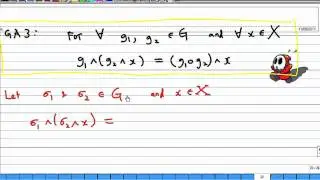 GA3: For ∀ g₁, g₂ ∈ G and ∀ x ∈ X
g₁ ∧ (g₂ ∧ x) = (g₁ ∘ g₂) ∧ x
Let σ₁ & σ₂ ∈ G, and x ∈ X
σ₁ ∧ (σ₂ ∧ x) =